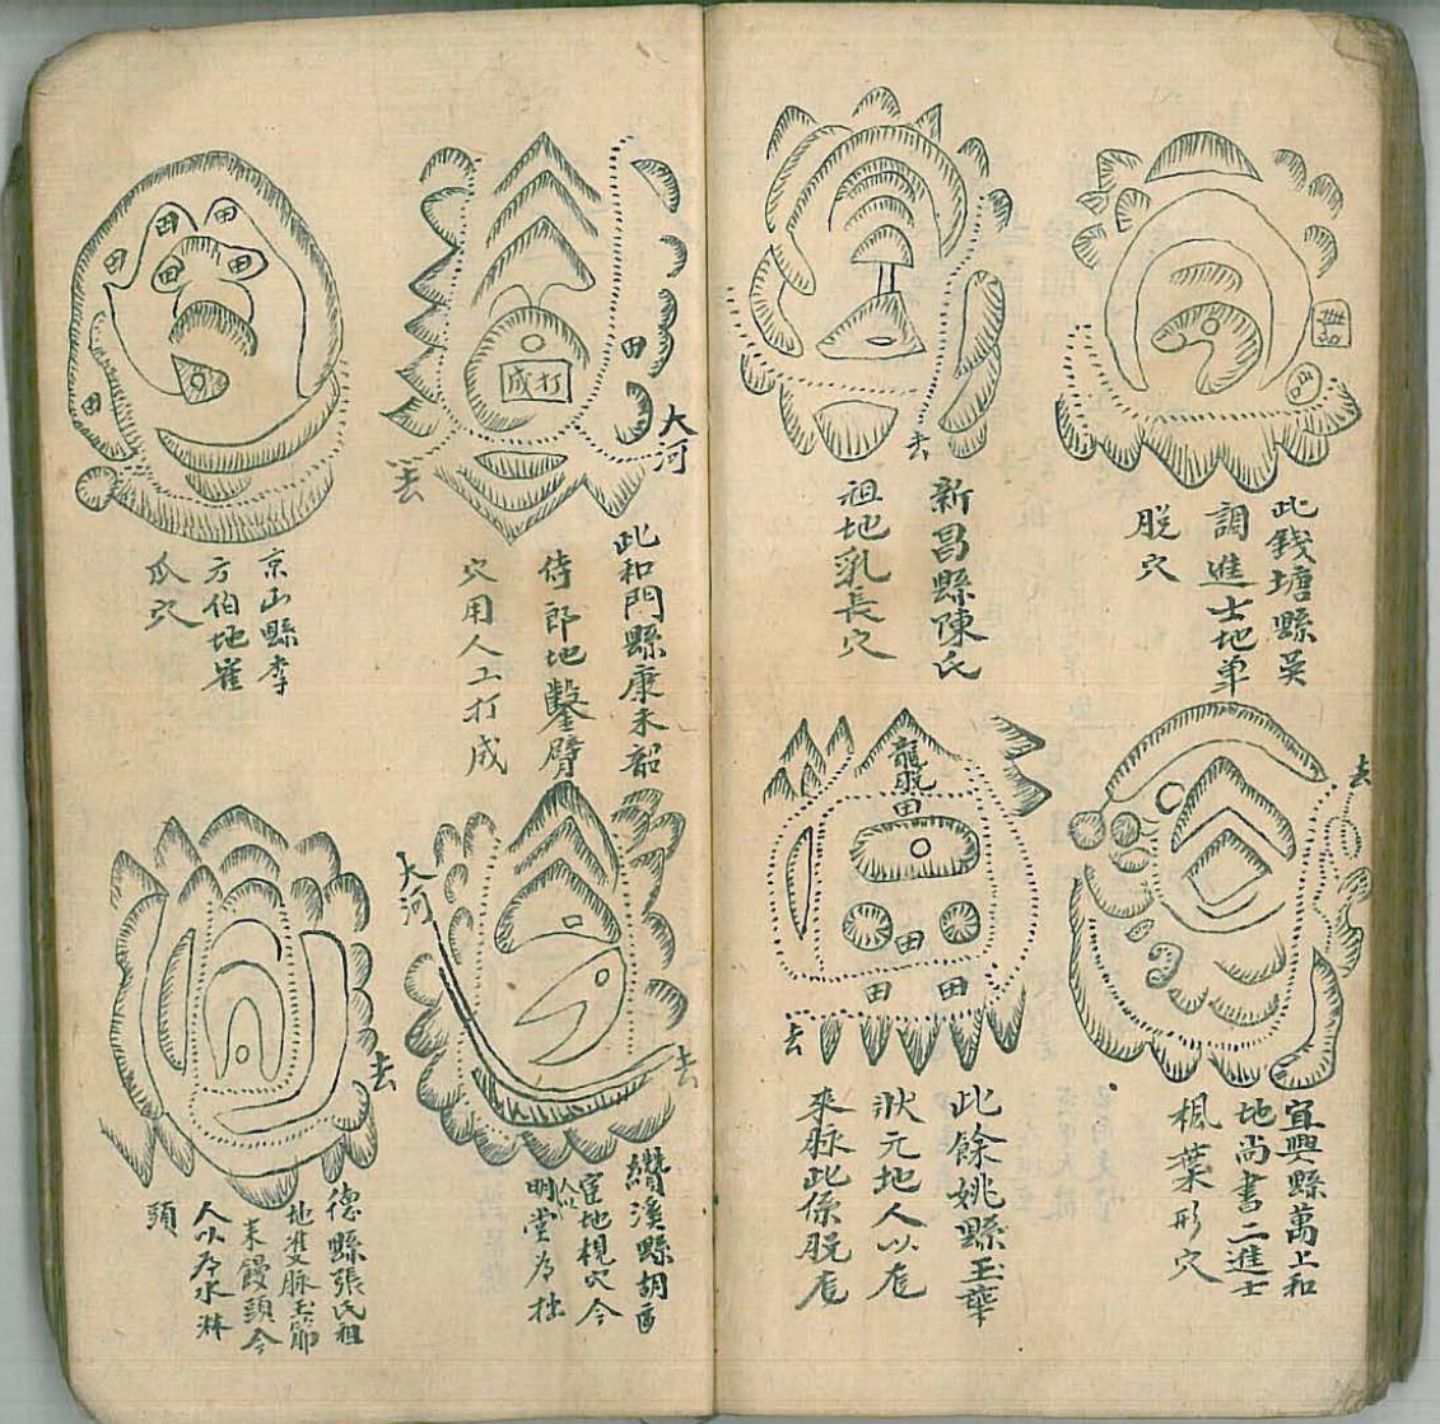 此錢塘縣吳
調進士地单
脱穴
新昌縣陳氏
祖地乳長穴
去
宜興縣萬上和
地尚書二進士
楓葉形穴
去
龍脱
田
田
田
田
去
此餘姚縣玉華
狀元地人以為
來脉此係脱
此和門縣康未韶
侍郎地鑿臂
穴用人工打成
打成
田
大河
去
京山縣李
方伯地雀
瓜穴
田
田
田
田
田
田
縣胡
宦地梘穴今
明堂为拙
大河
去
德縣張氏祖
地雙脉玉節
来饅頭今
人以为水淋
頭
去